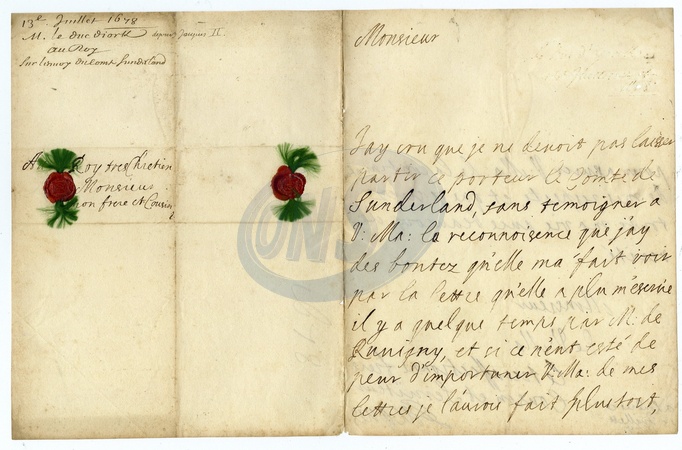 13e. Juillet 1678
M. le Duc d'iorck depuis Jacques II.
au Roy
Sur l'envoy du Comte Sunderland
Au Roy tres Chretien
Monsieur
mon frere et Cousin
Monsieur
J'ay cru que je ne devoit pas laisser
partir ce porteur le Comte de
Sunderland, sans temoigner a
V: Ma: la reconnoisence que j'ay
des bontez qu'elle ma fait voir
par la lettre qu'elle a plu m'escrire
il y a quelque temps par Mr. de
Ruvigny, et si ce n'ent esté de
peur d'importuner V: Ma: de mes
lettres je l'aurois fait plustost,